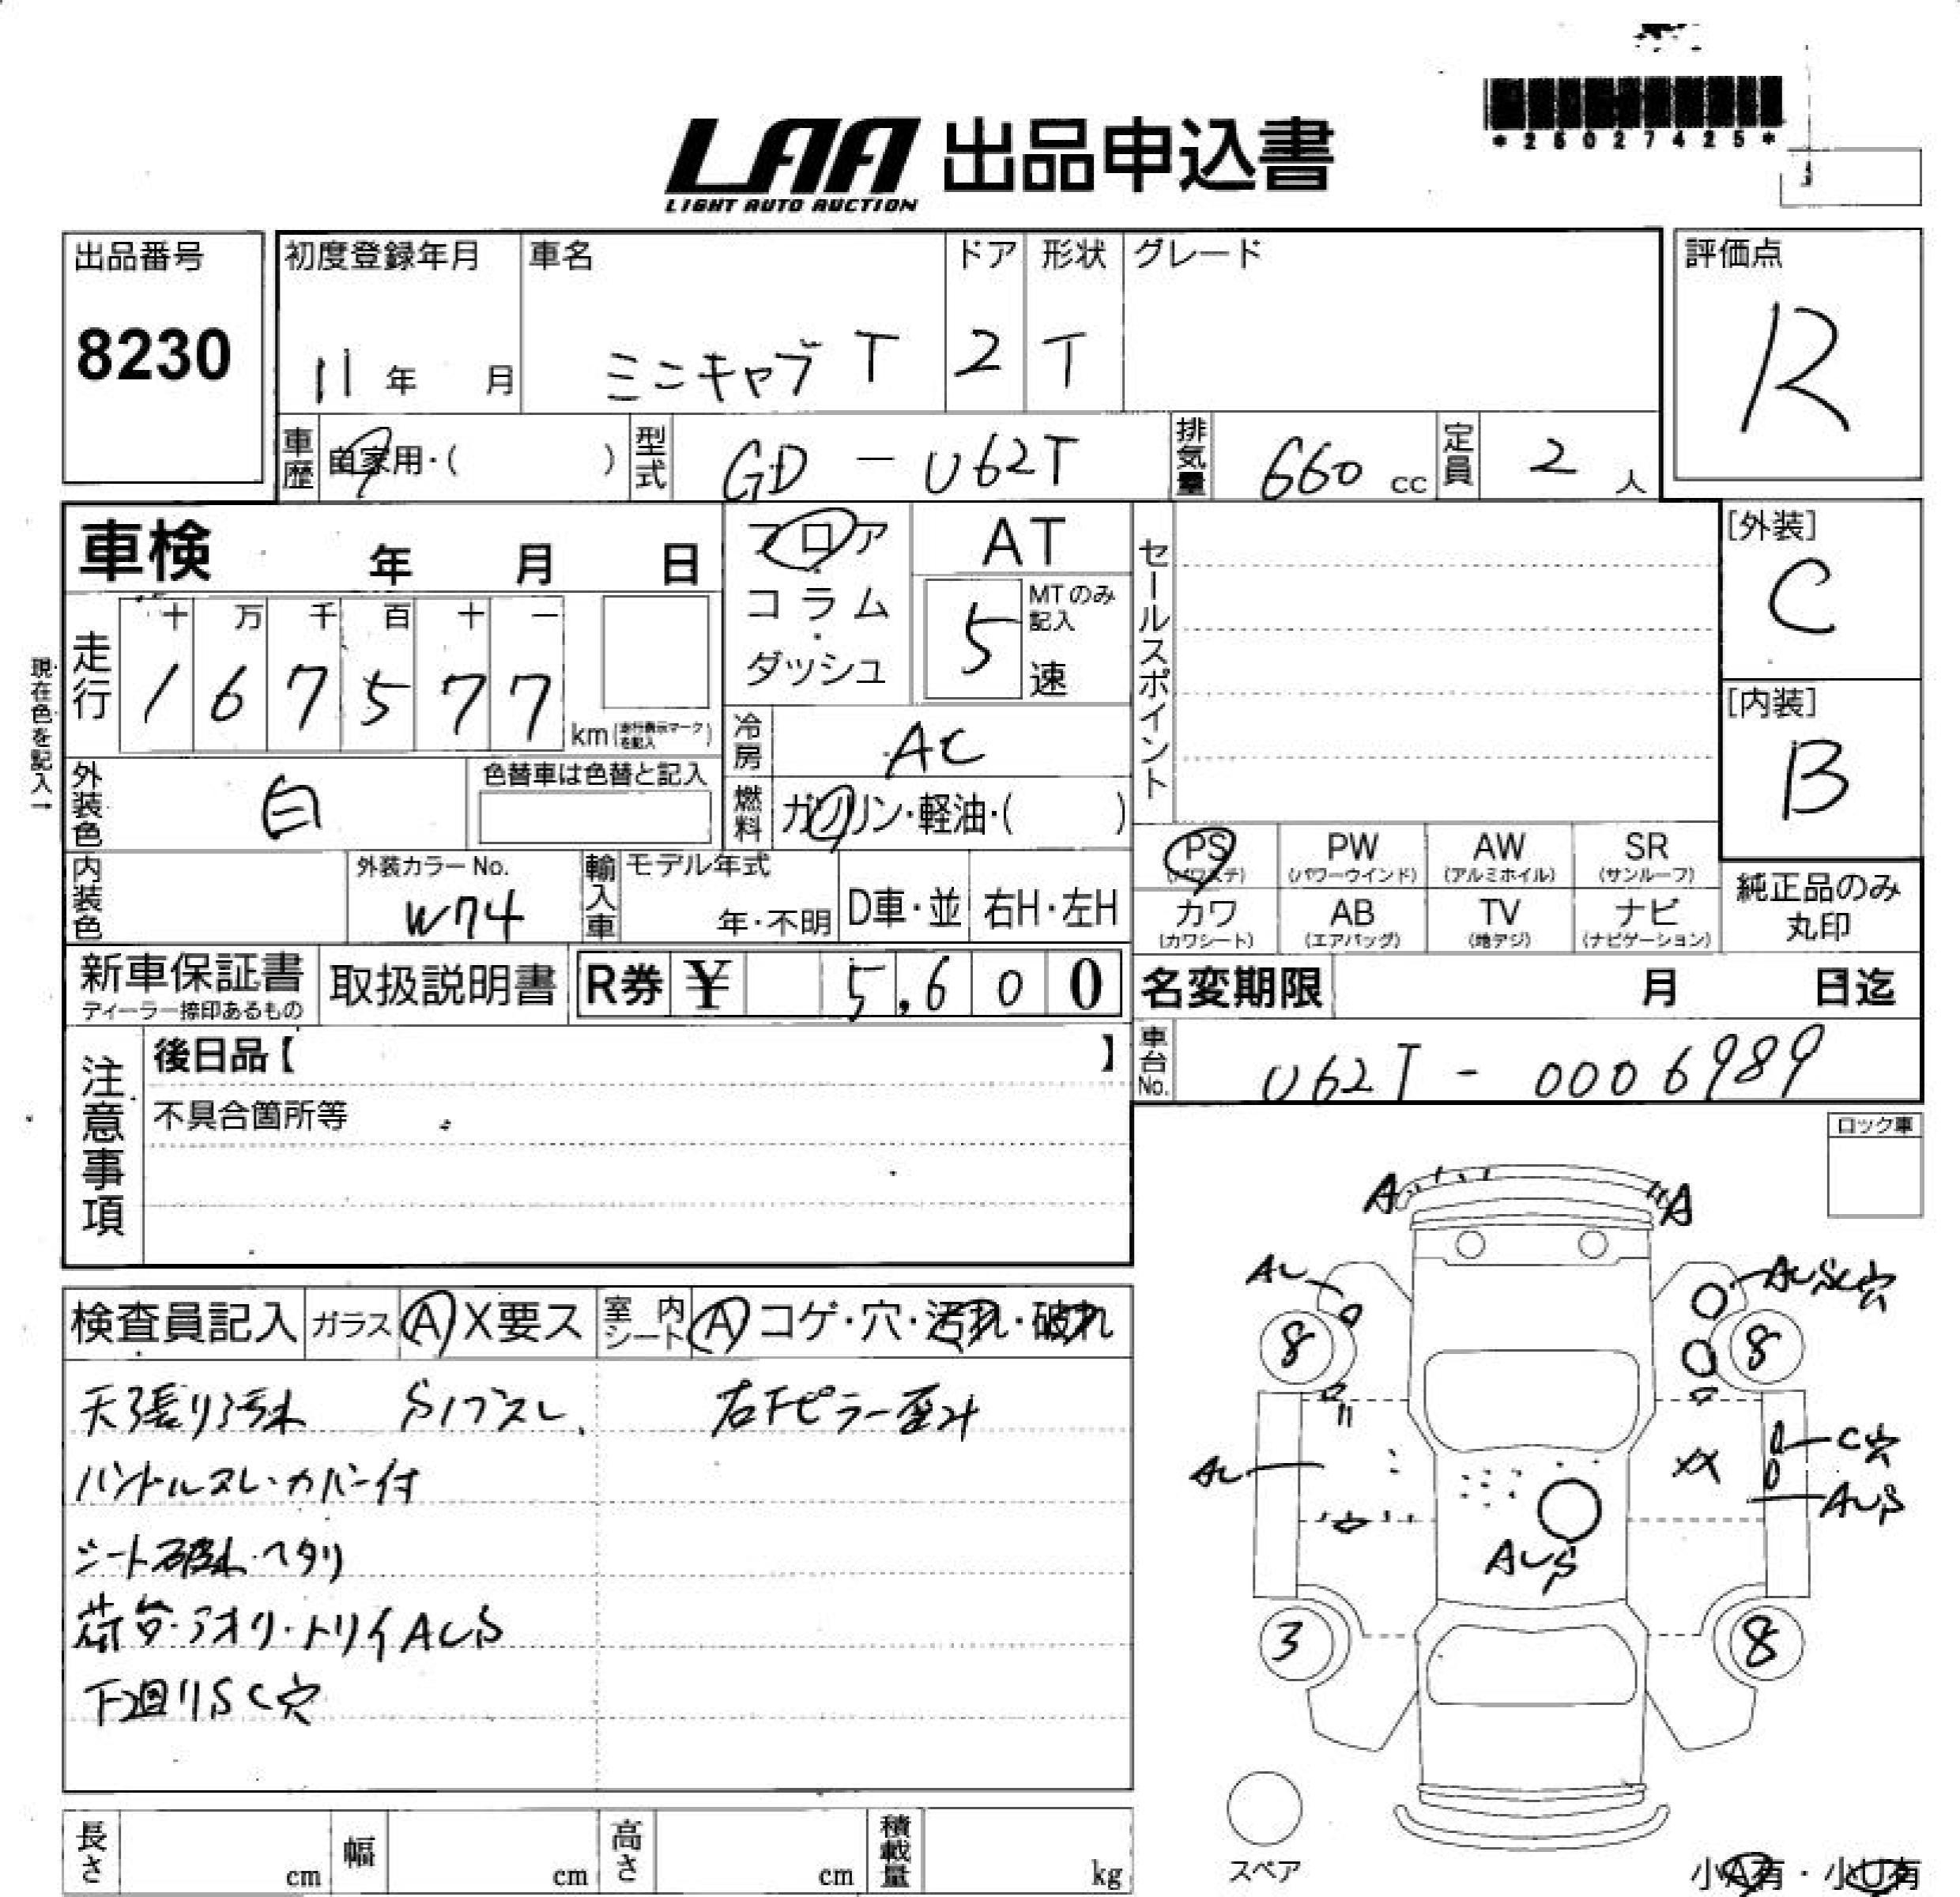 *26027425*
LAA 出品申込書
LIGHT AUTO AUCTION
出品番号
8230
初度登録年月 車名 ドア 形状 グレード
11年 月 ミニキャブ T 2 T
評価点
R
車歴 自家用・( ) 型式 GD - U62T 排気量 660 cc 定員 2 人
車検 年 月 日
フロア
・
コラム
・
ダッシュ
AT
5 MTのみ記入
速
セールスポイント
[外装]
C
[内装]
B
現在色を記入→
走行 十 万 千 百 十 一
1 6 7 5 7 7 km (走行表示マークを記入)
冷房 AC
燃料 ガソリン・軽油・( )
外装色 白 色替車は色替と記入
PS (パワステ) PW (パワーウインド) AW (アルミホイル) SR (サンルーフ)
カワ (カワシート) AB (エアバッグ) TV (地デジ) ナビ (ナビゲーション)
純正品のみ
丸印
内装色 外装カラーNo. W74 輸入車 モデル年式 年・不明 D車・並 右H・左H
新車保証書 取扱説明書 R券 ¥ 5,600
ディーラー捺印あるもの
名変期限 月 日迄
車台No. U62T - 0006989
注意事項
後日品【 】
不具合箇所等
ロック車
検査員記入 ガラス A X要ス 室内シート A コゲ・穴・汚れ・破れ
天張り汚れ Sノブスレ. 右Fピラー歪み
ハンドルスレ・カバー付
シート破れ・ヘタリ
荷台・アオリ・トリイAUS
下廻りSC穴
A A
AU AUSC穴
8 8
C穴
AU XX AUS
AUS
3 8
スペア
小A有・小U有
長さ cm 幅 cm 高さ cm 積載量 kg